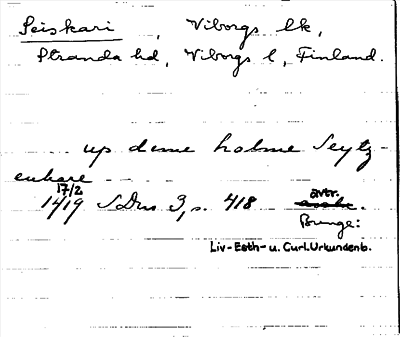 Seiskari, Viborgs lk,
Stranda hd, Viborgs l, Finland.
up deme holme Seytz-
enkare
17/2
1419 SDns 3, s. 418 avtr.
Bunge:
Liv-Esth-u. Curl.Urkundenb.